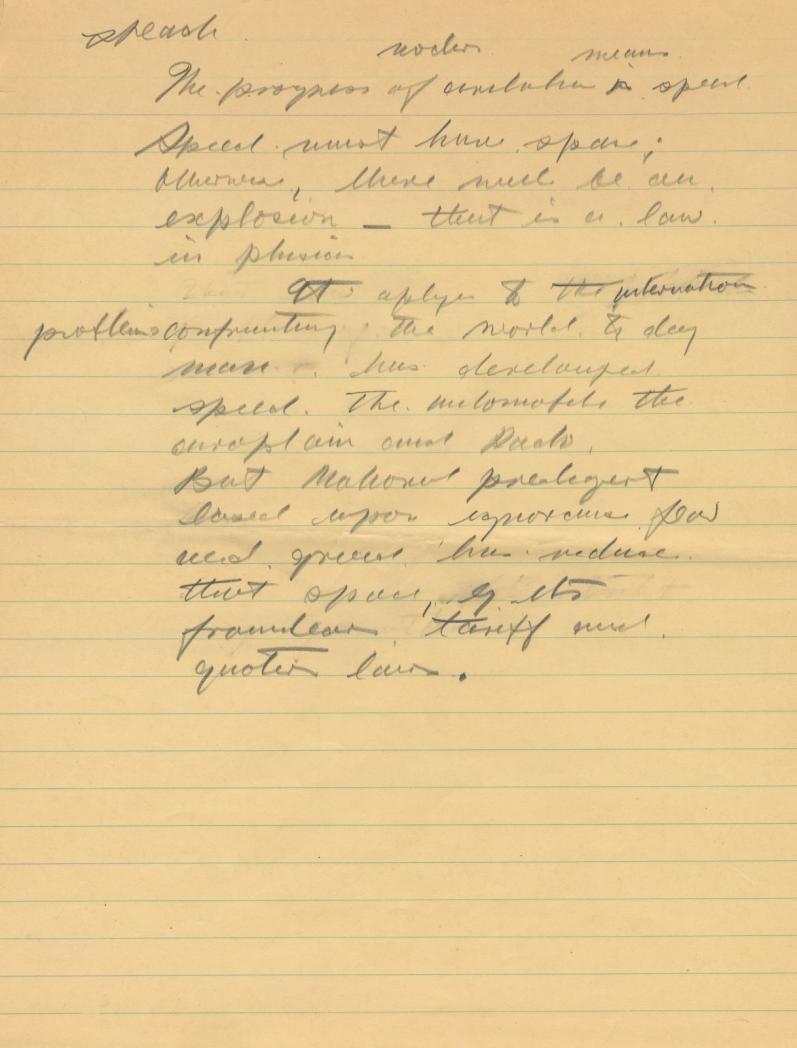 speach
modern means
The progress of civilation is speed
Speed must have space;
otherwise, there will be an
explosion — that is a law
in phisics
It aplys to the internation
problems confrunting the world to day
man has developed
speed. The automobile the
airoplain and Radio.
But National predegest
based upon ignorance fear
and greed has reduse
that space, by its
frountears tariff and
quoters laws.